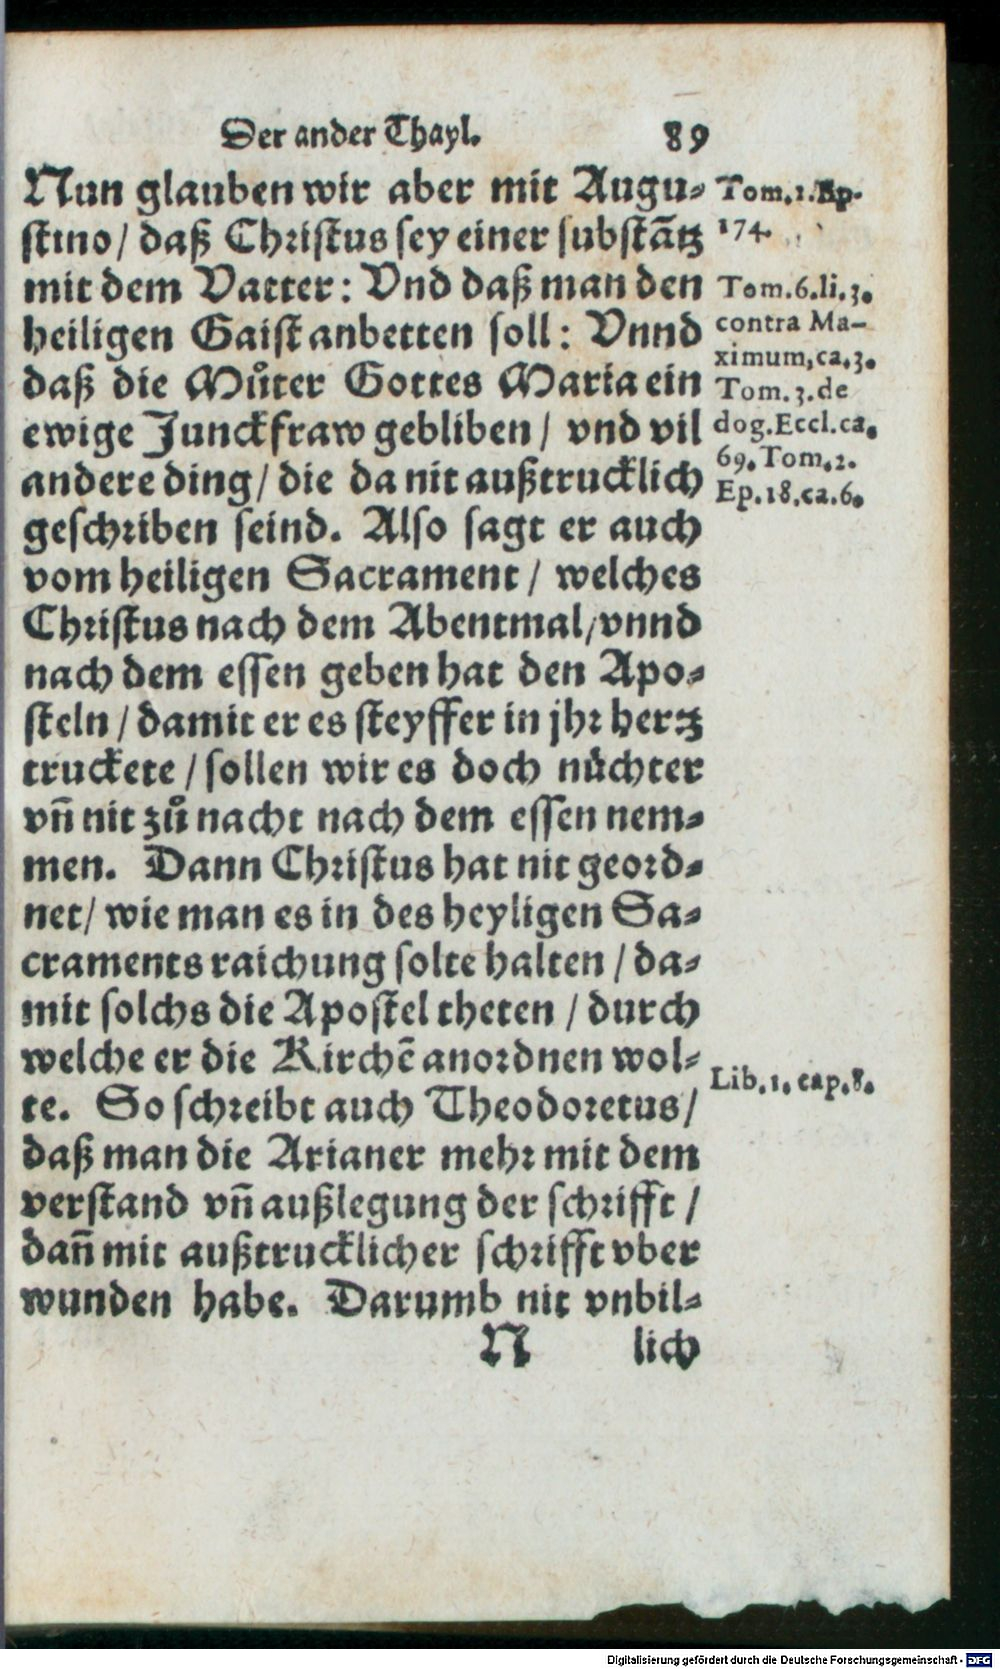 Der ander Thayl. 89
Nun glauben wir aber mit Augu⸗
stino / daß Christus sey einer substãtz
mit dem Vatter: Vnd daß man den
heiligen Gaist anbetten soll: Vnnd
daß die Můter Gottes Maria ein
ewige Junckfraw gebliben / vnd vil
andere ding / die da nit außtrucklich
geschriben seind. Also sagt er auch
vom heiligen Sacrament / welches
Christus nach dem Abentmal / vnnd
nach dem essen geben hat den Apo⸗
steln / damit er es steyffer in jhr hertz
truckete / sollen wir es doch nüchter
vñ nit zů nacht nach dem essen nem⸗
men. Dann Christus hat nit geord⸗
net / wie man es in des heyligen Sa⸗
craments raichung solte halten / da⸗
mit solchs die Apostel theten / durch
welche er die Kirchẽ anordnen wol⸗
te. So schreibt auch Theodoretus /
daß man die Arianer mehr mit dem
verstand vñ außlegung der schrifft /
dañ mit außtrucklicher schrifft vber
wunden habe. Darumb nit vnbil⸗
N lich
Tom.1.Ep.
174.
Tom.6.li.3.
contra Ma-
ximum,ca.3.
Tom.3.de
dog.Eccl.ca.
69.Tom.2.
Ep.18.ca.6.
Lib.1.cap.8.
Digitalisierung gefördert durch die Deutsche Forschungsgemeinschaft - DFG